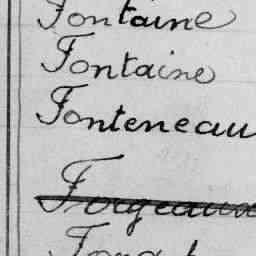 Fontaine
Fontaine
Fonteneau
Forgeaux